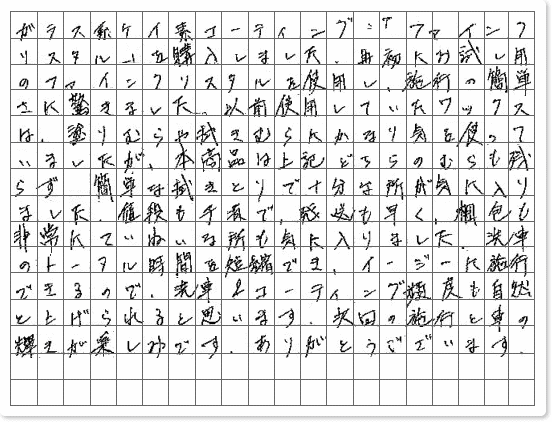 ガラス系ケイ素コーティング剤「ファインク
リスタル」を購入しました。最初にお試し用
のファインクリスタルを使用し、施行の簡単
さに驚きました。以前使用していたワックス
は、塗りむらや拭きむらにかなり気を使って
いましたが、本商品は上記どちらのむらも残
らず、簡単な拭きとりで十分な所が気に入り
ました。値段も手頃で、発送も早く、梱包も
非常にていねいな所も気に入りました。洗車
のトータル時間を短縮でき、イージーに施行
できるので、洗車&コーティング頻度も自然
と上げられると思います。次回の施行と車の
輝きが楽しみです。ありがとうございます。